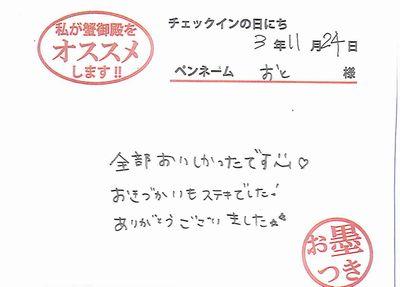 私が蟹御殿を
オススメ
します!!
チェックインの日にち
3年11月24日
ペンネーム おと 様
全部おいしかったです♡
おきづかいもステキでした!
ありがとうございました
お墨
つき